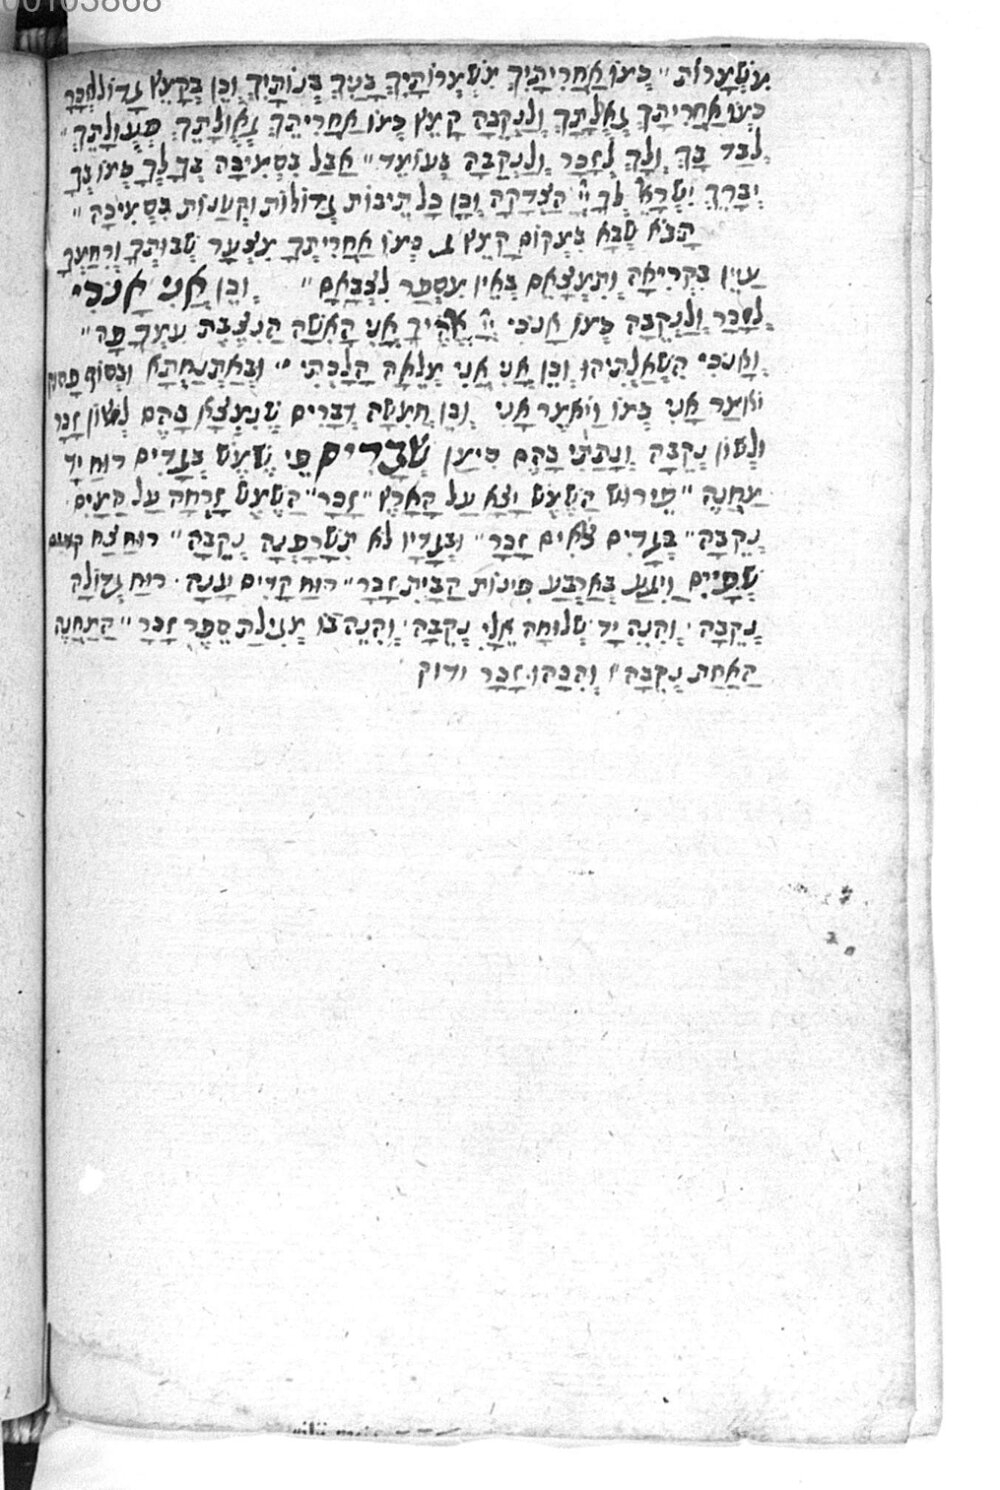 00103868
מִשְׁמָרוֹת״ כְּמוֹ אַחֲרִיתֵיךְ מִשְׁמְרוֹתַיִךְ בָּנַיִךְ בְּנוֹתַיִךְ וְכֵן בְּקָמֵץ גָּדוֹל לְזָכָר
כְּמוֹ אַחֲרִיתָךְ גְּאֻלָּתָךְ וְלַנְּקֵבָה קָמֵץ כְּמוֹ אַחֲרִיתֵךְ גְּאוּלָּתֵךְ פְּעֻלָּתֵךְ״
לְבַד בָּךְ וְלָךְ לְזָכָר וְלַנְּקֵבָה בְּעוֹמֵד״ אֲבָל בִּסְמִיכָה בְּךָ לְךָ כְּמוֹ בְּךָ
יְבָרֵךְ יִשְׂרָאֵל לְךָ יְיָ הַצְּדָקָה וְכֵן כָּל תֵּיבוֹת גְּדוֹלוֹת וּקְטַנּוֹת בִּסְמִיכָה״
הַבֹּא שֶׁבָּא בִּמְקוֹם קָמֵץ כְּמוֹ אַחֲרִיתֶךָ מִצְעָר שְׁבוּתְךָ וְרִחַמְךָ
עַיֵּין בִּקְרִיאָה וְתִמְצָאֵם בְּאֵין מִסְפַּר לִצְבָאָם״ וְכֵן אֲנִי אָנֹכִי
לְזָכָר וְלַנְּקֵבָה כְּמוֹ אָנֹכִי יְיָ אֱלֹהֶיךָ אֲנִי הָאִשָּׁה הַנִּצֶּבֶת עִמְּךָ בָּזֶה״
וְאָנֹכִי הִשְׁאִלְתִּיהוּ וְכֵן אֲנִי אֲנִי מְלֵאָה הָלַכְתִּי״ וּבְאֶתְנַחְתָּא וּבְסוֹף פָּסוּק
יֹאמַר אָנִי כְּמוֹ וַיֹּאמֶר אָנִי וְכֵן חֲמִשָּׁה דְּבָרִים שֶׁנִּמְצָא בָהֶם לְשׁוֹן זָכָר
וּלְשׁוֹן נְקֵבָה וְנָתַתִּי בָהֶם סִימָן
מַחֲנֶה״ פֵּירוּשׁ הַשֶּׁמֶשׁ יָצָא עַל הָאָרֶץ״ זָכָר״ הַשֶּׁמֶשׁ זָרְחָה עַל הַמָּיִם
נְקֵבָה״ בְּגָדִים צֹאִים זָכָר״ וּבְגָדָיו לֹא תִשָּׂרַפְנָה נְקֵבָה״ רוּחַ צַח
שְׁפָיִים וַיִּגַּע בְּאַרְבַּע פִּינּוֹת הַבַּיִת זָכָר״ רוּחַ קָדִים רוּחַ גְּדוֹלָה
נְקֵבָה וְהִנֵּה יָד שְׁלוּחָה אֵלַי נְקֵבָה וְהִנֵּה בוֹ מְגִילַת סֵפֶר זָכָר״ הַמַּחֲנֶה
הָאַחַת נְקֵבָה״ וְהִכָּהוּ זָכָר ודוק